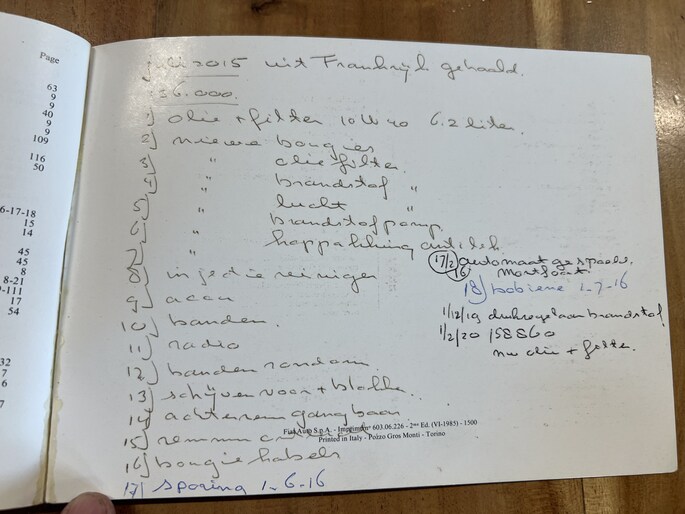 Page
63
9
9
40
9
9
109
116
50
6-17-18
15
14
45
45
8
8-21
9-111
17
54
32
7
6
7
juli 2015 uit Frankrijk gehaald.
156.000.
1) olie + filter 10W40 6.2 liter.
2) nieuwe bougies
3) " oliefilter.
4) " brandstof "
5) " lucht "
6) " brandstofpomp.
7) " koppakking
8) injectie reiniger
9) accu
10) banden.
11) radio
12) banden rondom.
13) schijven voor + blokken.
14) achterrem gangbaar
15) remmen
16) bougiekabels
17) sporing 1-6-16
17/2/16 automaat gespoeld.
Montfoort.
18) bobiene 1-7-16
1/12/19 drukregelaar brandstof
1/2/20 158860
nw olie + filter.
Fiat Auto S.p.A. - Imprimé nº 603.06.226 - 2me Ed. (VI-1985) - 1500
Printed in Italy - Pozzo Gros Monti - Torino